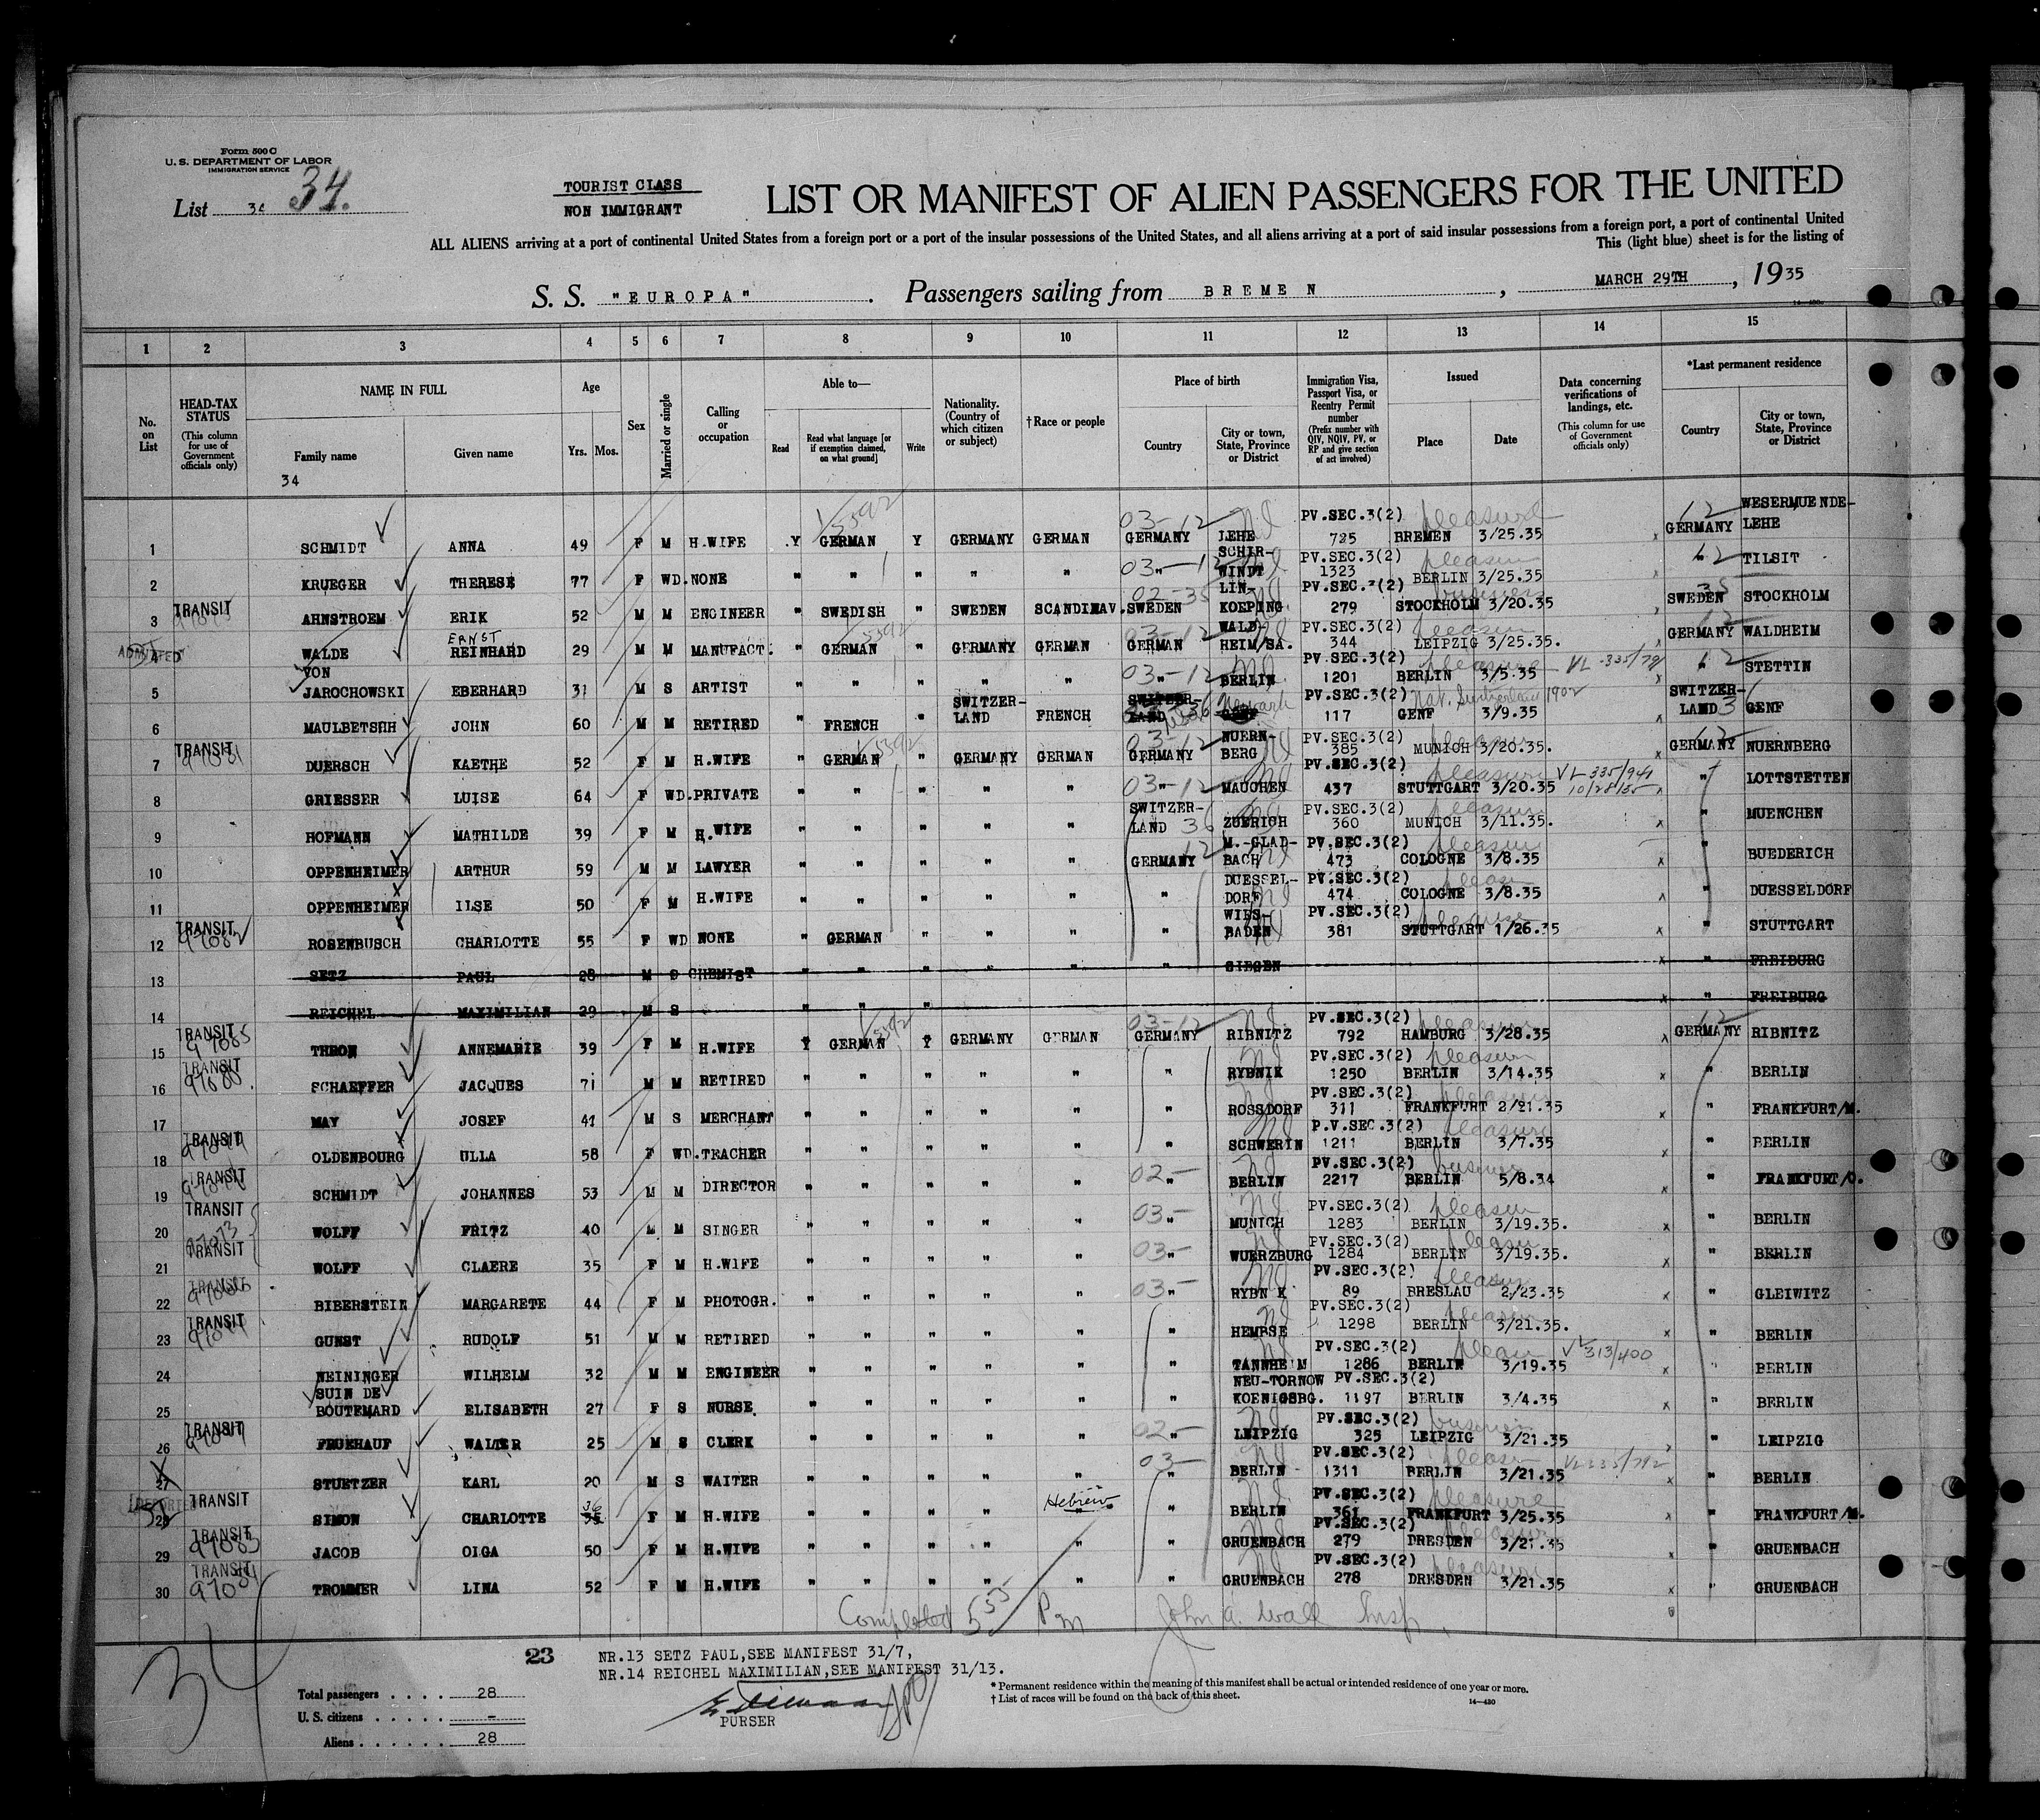 Form 500 C
U. S. DEPARTMENT OF LABOR
IMMIGRATION SERVICE
List 34 34.
TOURIST CLASS
NON IMMIGRANT
LIST OR MANIFEST OF ALIEN PASSENGERS FOR THE UNITED
ALL ALIENS arriving at a port of continental United States from a foreign port or a port of the insular possessions of the United States, and all aliens arriving at a port of said insular possessions from a foreign port, a port of continental United
This (light blue) sheet is for the listing of
S. S. "EUROPA" . Passengers sailing from BREMEN , MARCH 29TH , 1935
1 2 3 4 5 6 7 8 9 10 11 12 13 14 15
No. on List
HEAD-TAX STATUS (This column for use of Government officials only)
NAME IN FULL
Family name
Given name
34
Age
Yrs. Mos.
Sex
Married or single
Calling or occupation
Able to—
Read
Read what language [or if exemption claimed, on what ground]
Write
Nationality. (Country of which citizen or subject)
†Race or people
Place of birth
Country
City or town, State, Province or District
Immigration Visa, Passport Visa, or Reentry Permit number (Prefix number with QIV, NQIV, PV, or RP and give section of act involved)
Issued
Place
Date
Data concerning verifications of landings, etc. (This column for use of Government officials only)
*Last permanent residence
Country
City or town, State, Province or District
1 SCHMIDT ANNA 49 F M H.WIFE Y GERMAN Y GERMANY GERMAN 03-12 GERMANY LEHE PV.SEC.3(2) 725 pleasure BREMEN 3/25.35 12 GERMANY WESERMUENDE-LEHE
2 KRUEGER THERESE 77 F WD. NONE " " " " " 03-12 " SCHIR-WINDT PV.SEC.3(2) 1323 pleasure BERLIN 3/25.35 " 12 TILSIT
3 TRANSIT AHNSTROEM ERIK 52 M M ENGINEER " SWEDISH " SWEDEN SCANDINAV. 02-35 SWEDEN LIN-KOEPING PV.SEC.3(2) 279 business STOCKHOLM 3/20.35 35 SWEDEN STOCKHOLM
4 ADMITTED WALDE ERNST REINHARD 29 M M MANUFACT. " GERMAN " GERMANY GERMAN 03-12 GERMAN WALD-HEIM/SA. PV.SEC.3(2) 344 pleasure LEIPZIG 3/25.35. 12 GERMANY WALDHEIM
5 VON JAROCHOWSKI EBERHARD 31 M S ARTIST " " " " " 03-12 " BERLIN PV.SEC.3(2) 1201 pleasure BERLIN 3/5.35 " 12 STETTIN
6 MAULBETSHH JOHN 60 M M RETIRED " FRENCH " SWITZER-LAND FRENCH SWITZER-LAND Newark GENF PV.SEC.3(2) 117 Nat. Switzerland 1902 GENF 3/9.35 SWITZER-LAND GENF
7 TRANSIT DUERSCH KAETHE 52 F M H.WIFE " GERMAN " GERMANY GERMAN 03-12 GERMANY NUERN-BERG PV.SEC.3(2) 385 MUNICH 3/20.35. 12 GERMANY NUERNBERG
8 GRIESSER LUISE 64 F WD. PRIVATE " " " " " 03-12 " MAUCHEN PV.SEC.3(2) 437 pleasure STUTTGART 3/20.35 VL 335/941 10/28/35 " LOTTSTETTEN
9 HOFMANN MATHILDE 39 F M H.WIFE " " " " " SWITZER-LAND 36 ZUERICH PV.SEC.3(2) 360 pleasure MUNICH 3/11.35. " MUENCHEN
10 OPPENHEIMER ARTHUR 59 M M LAWYER " " " " " GERMANY 12 M.-GLAD-BACH PV.SEC.3(2) 473 pleasure COLOGNE 3/8.35 " BUEDERICH
11 OPPENHEIMER ILSE 50 F M H.WIFE " " " " " " DUESSEL-DORF PV.SEC.3(2) 474 COLOGNE 3/8.35 " DUESSELDORF
12 TRANSIT 97082 ROSENBUSCH CHARLOTTE 55 F WD NONE " GERMAN " " " " WIES-BADEN PV.SEC.3(2) 381 pleasure STUTTGART 1/26.35 " STUTTGART
13 SETZ PAUL 28 M S CHEMIST " " " " " " SIEGEN " FREIBURG
14 REICHEL MAXIMILIAN 29 M S " " " " FREIBURG
15 TRANSIT 97085 THRON ANNEMARIE 39 F M H.WIFE Y GERMAN Y GERMANY GERMAN 03-12 GERMANY RIBNITZ PV.SEC.3(2) 792 HAMBURG 3/28.35 12 GERMANY RIBNITZ
16 TRANSIT SCHAEFFER JACQUES 71 M M RETIRED " " " " " " RYBNIK PV.SEC.3(2) 1250 pleasure BERLIN 3/14.35 " BERLIN
17 MAY JOSEF 41 M S MERCHANT " " " " " " ROSSDORF PV.SEC.3(2) 311 FRANKFURT 2/21.35 " FRANKFURT/M.
18 TRANSIT OLDENBOURG ULLA 58 F WD. TEACHER " " " " " " SCHWERIN P.V.SEC.3(2) 1211 pleasure BERLIN 3/7.35 " BERLIN
19 TRANSIT SCHMIDT JOHANNES 53 M M DIRECTOR " " " " " 02- BERLIN PV.SEC.3(2) 2217 business BERLIN 5/8.34 " FRANKFURT/O.
20 TRANSIT WOLFF FRITZ 40 M M SINGER " " " " " 03- " MUNICH PV.SEC.3(2) 1283 pleasure BERLIN 3/19.35. " BERLIN
21 97073 TRANSIT WOLFF CLAERE 35 F M H.WIFE " " " " " 03- " WUERZBURG PV.SEC.3(2) 1284 pleasure BERLIN 3/19.35. " BERLIN
22 TRANSIT BIBERSTEIN MARGARETE 44 F M PHOTOGR. " " " " " 03- " RYBN K PV.SEC.3(2) 89 pleasure BRESLAU 2/23.35 " GLEIWITZ
23 TRANSIT GUNST RUDOLF 51 M M RETIRED " " " " " " HEMPSE PV.SEC.3(2) 1298 pleasure BERLIN 3/21.35. " BERLIN
24 NEININGER WILHELM 32 M M ENGINEER " " " " " " TANNHEIM PV.SEC.3(2) 1286 BERLIN 3/19.35 VL 313/400 " BERLIN
25 SUIN DE BOUTEMARD ELISABETH 27 F S NURSE " " " " " " NEU-TORNOW KOENIGSBG. PV.SEC.3(2) 1197 BERLIN 3/4.35 " BERLIN
26 TRANSIT FRUEHAUF WALTER 25 M S CLERK " " " " " 02- " LEIPZIG PV.SEC.3(2) 325 business LEIPZIG 3/21.35 " LEIPZIG
27 STUETZER KARL 20 M S WAITER " " " " " 03- " BERLIN PV.SEC.3(2) 1311 BERLIN 3/21.35 VL 335/792 " BERLIN
28 TRANSIT SIMON CHARLOTTE 36 35 F M H.WIFE " " " " Hebrew " BERLIN PV.SEC.3(2) 361 pleasure FRANKFURT 3/25.35 " FRANKFURT/M.
29 TRANSIT 97083 JACOB OLGA 50 F M H.WIFE " " " " " " GRUENBACH PV.SEC.3(2) 279 DRESDEN 3/21.35 " GRUENBACH
30 TRANSIT 97084 TROMMER LINA 52 F M H.WIFE " " " " " " GRUENBACH PV.SEC.3(2) 278 pleasure DRESDEN 3/21.35 " GRUENBACH
Completed 5 55 Pm John A. Wall Insp.
34
23
NR.13 SETZ PAUL,SEE MANIFEST 31/7,
NR.14 REICHEL MAXIMILIAN,SEE MANIFEST 31/13.
PURSER
Total passengers . . . . 28
U. S. citizens . . . . . . -
Aliens . . . . . . 28
* Permanent residence within the meaning of this manifest shall be actual or intended residence of one year or more.
† List of races will be found on the back of this sheet.
14—430